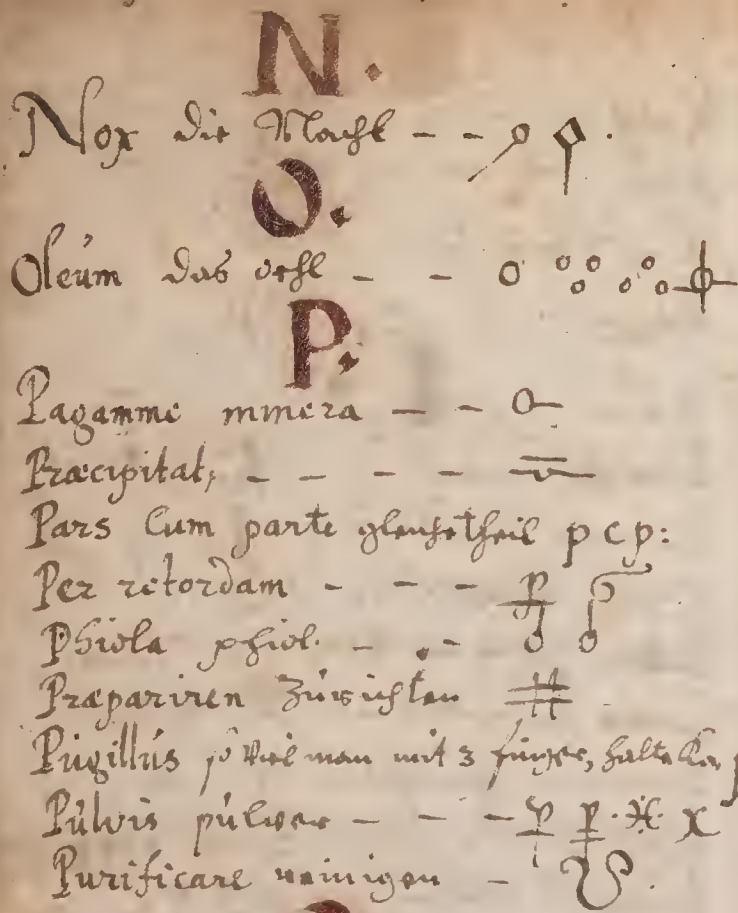 N.
Nox die Nacht - -
O.
Oleúm das oehl - -
P.
Pagamme minera - -
Præcipitat, - - - -
Pars Cum parte gleiche theil p c p:
Per retordam - - -
Phiola phiol. - . -
Præpariren Zúrichten
Púgillús so viel man mit 3 finger, halte kan
Púlvis púlver - - -
Purificare reinigen -